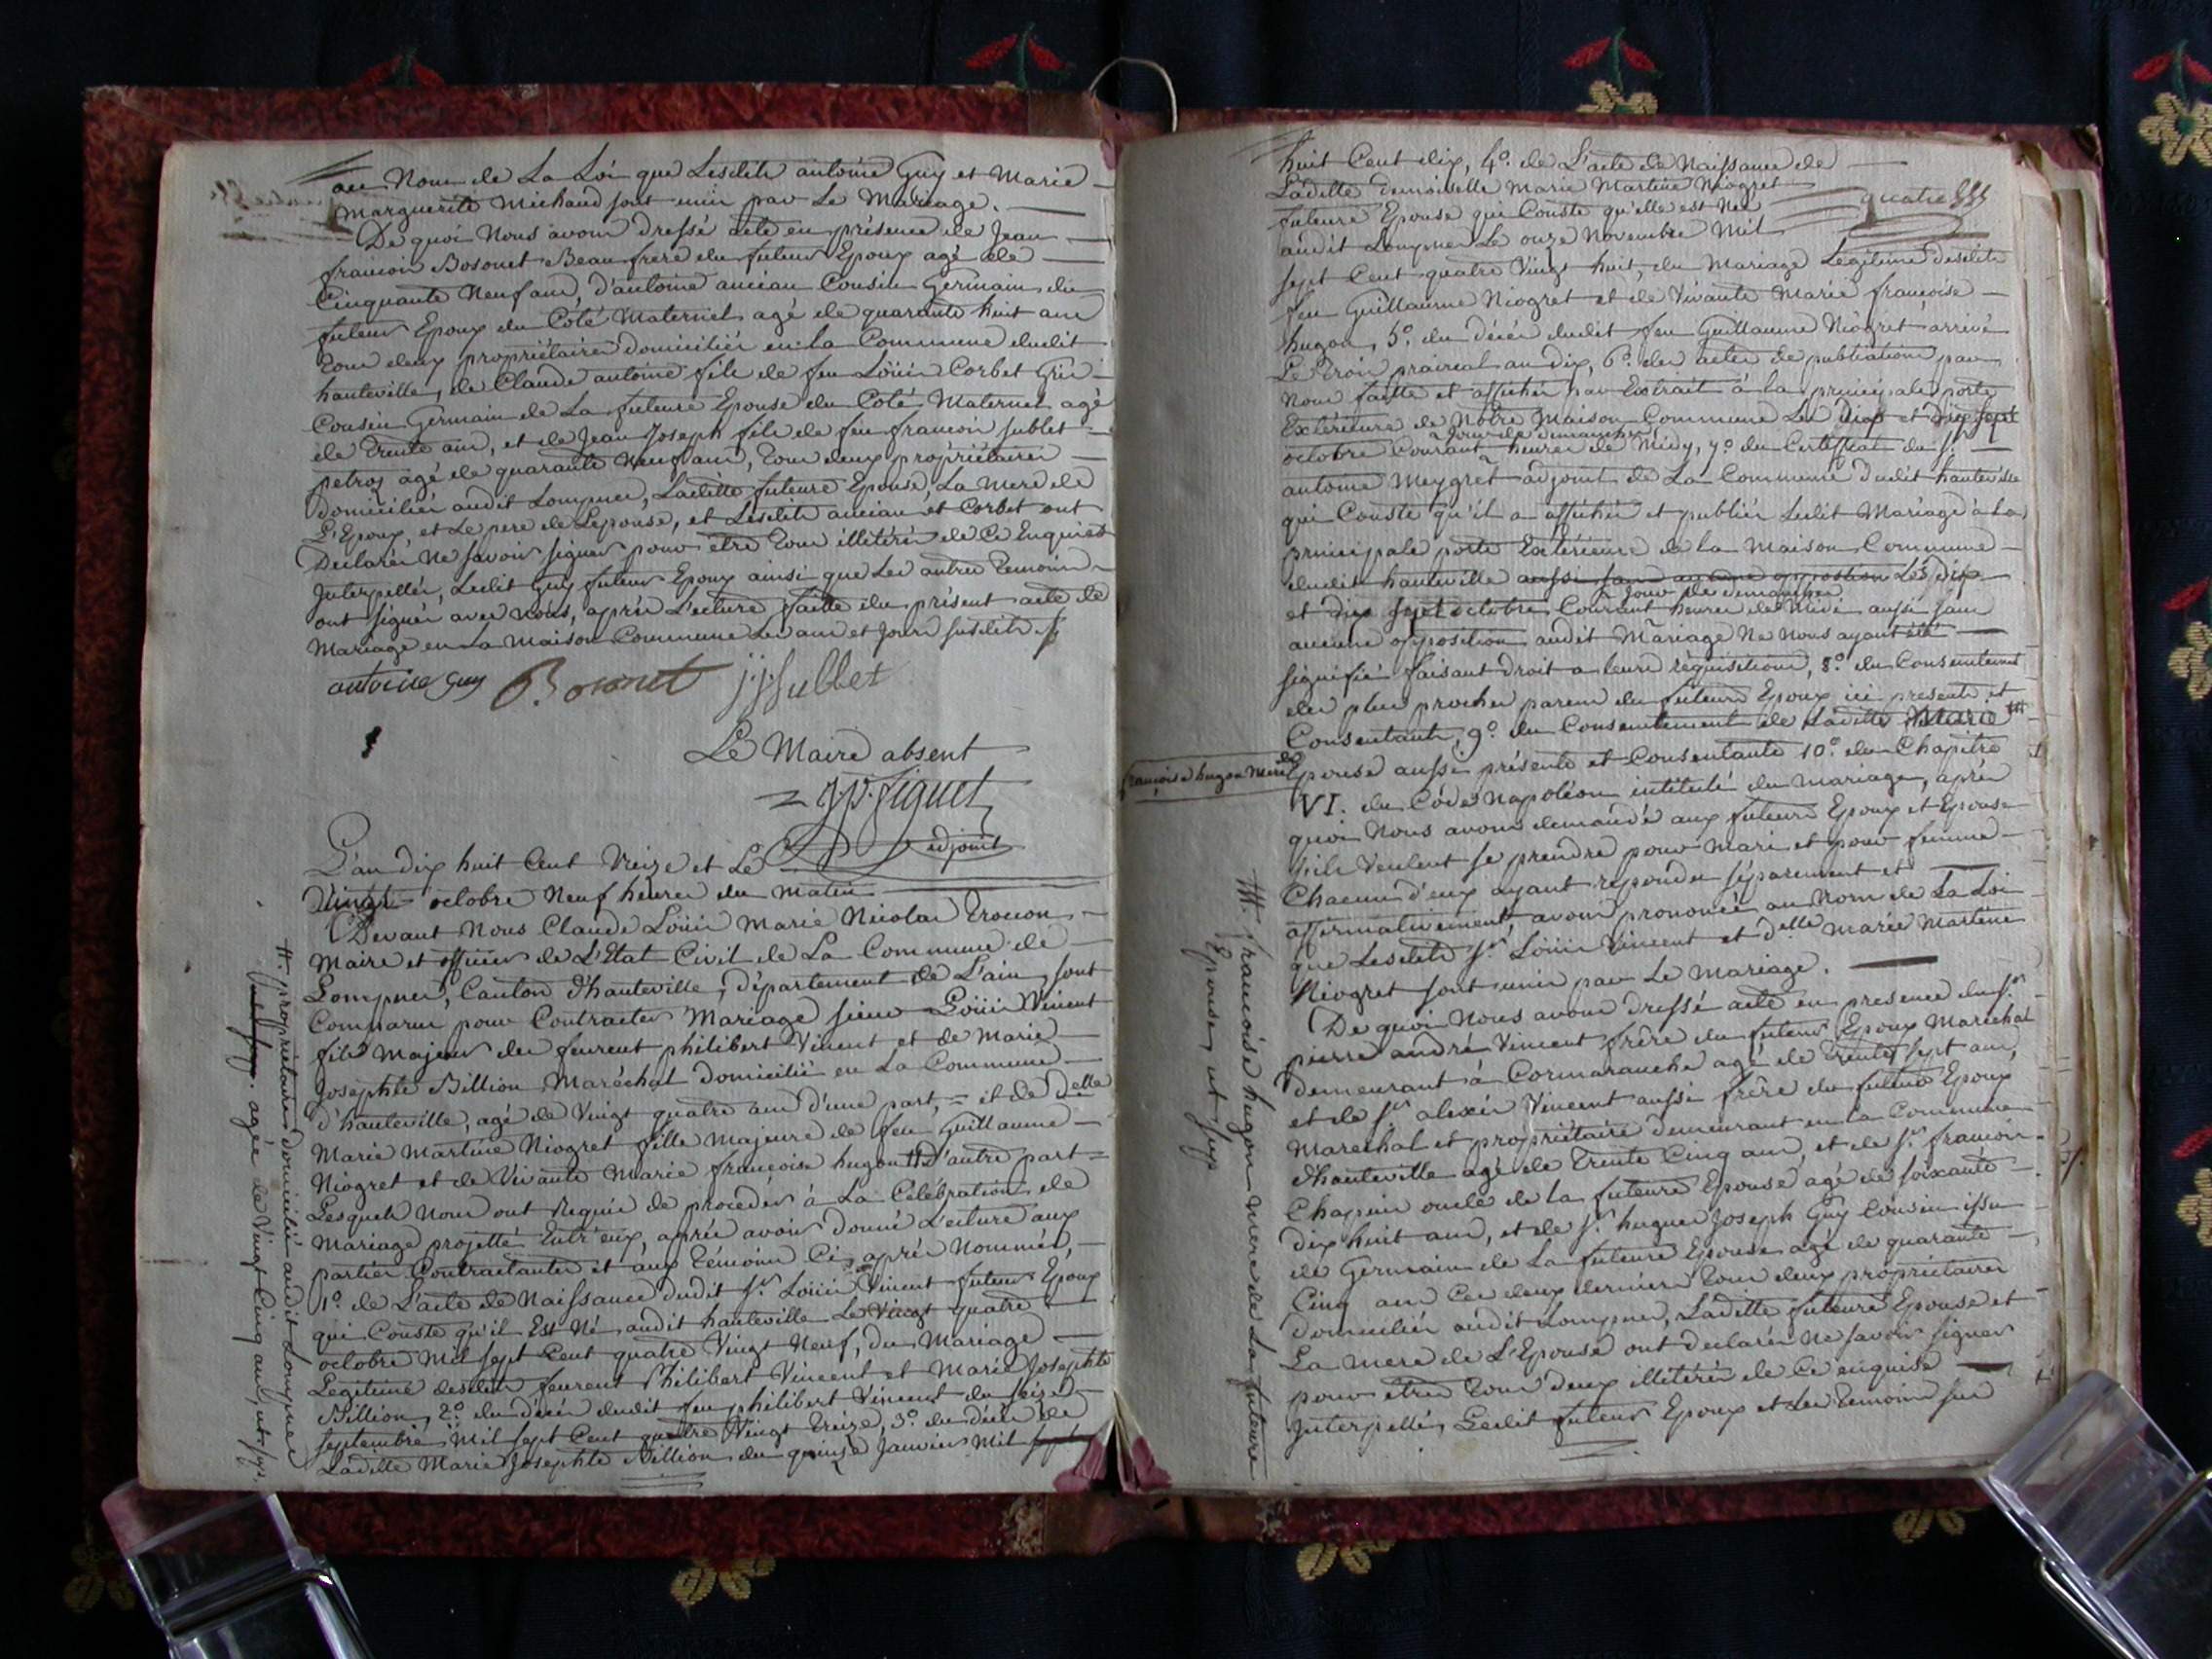 au Nom de La Loi que Lesdits antoine Guy et Marie
Marguerite Michaud sont unis par Le Mariage.
De quoi Nous avons dressé acte en présence de Jean
françois Bosonet Beau frere du futeur Epoux agé de
Cinquante Neuf ans, d'antoine ancian Cousin Germain du
futeur Epoux du Coté Maternel agé de quarante huit ans
tous deux propriétaires domiciliés en la Commune dudit
hauteville, de Claude antoine fils de feu Loüis Corbet Gris
Cousin Germain de La futeure Epouse du Coté Maternel agé
de trente ans, et de Jean Joseph fils de feu francois sublet
petros agé de quarante Neuf ans, tous deux propriétaires
domiciliés audit Lompnes, Laditte futeure Epouse, La Mere de
L'Epoux, et Le pere de L'epouse, et Lesdits ancian et Corbet ont
Declarés Ne savoir signer pour être tous illitérés de Ce Enquis et
Interpellés, Ledit Guy futeur Epoux ainsi que Les autres temoins
ont signés avec nous, après Lecture faitte du présent acte de
Mariage en La Maison Commune Les ans et Jours susdits
antoine guy Bosonet j.j. Sublet
Le Maire absent
J.P. figuet
adjoint
L'an dix huit Cent treize et Le
Vingt octobre Neuf heures du matin
Devant Nous Claude Loüis Marie Nicolas trocon
Maire et officier de L'Etat Civil de La Commune de
Lompnes, Canton d'hauteville, département de L'ain, sont
Comparus pour Contracter Mariage sieur Loüis Vincent
fils Majeur des feurent philibert Vincent et de Marie
Josephte Billion Maréchal domicilié en La Commune
d'hauteville, agé de Vingt quatre ans d'une part, = et de Delle
Marie Martine Niogret fille Majeure de feu Guillaume
Niogret et de Vivante Marie francoise hugon H d'autre part =
Lesquels Nous ont Requis de proceder à La Célébration de
Mariage projetté Entr'eux, après avoir donné Lecture aux
parties Contractantes et aux témoins Ci après Nommés,
1º. de L'acte de Naissance dudit sr. Loüis Vincent futeur Epoux
qui Conste qu'il Est Né audit hauteville Le Vingt quatre
octobre Mil sept Cent quatre Vingt Neuf, du Mariage
Légitime desdits feurent Philibert Vincent et Marie Josephte
Billion, 2º. du décès dudit feu philibert Vincent du seize
septembre Mil sept Cent quatre Vingt treize, 3º. du décès de
Laditte Marie Josephte Billion du quinze Janvier Mil sept
H. propriétaire domicilié audit Lompnes
agée de Vingt Cinq ans, ut sup.
huit Cent dix, 4º. de L'acte de Naissance de
Laditte demoiselle Marie Martine Niogret
quatre
futeure Epouse qui Conste qu'elle est Née
audit Lompnes Le onze Novembre Mil
sept Cent quatre Vingt huit, du Mariage Légitime desdits
feu Guillaume Niogret et de Vivante Marie françoise
hugon, 5º. du décès dudit feu Guillaume Niogret arrivé
Le trois prairéal an dix, 6º. des actes de publication par
Nous faitte et affichés par Extrait à la principale porte
Extérieure de Nôtre Maison Commune Les dix et dix sept
Jour de dimanches
octobre Courant heures de Midy, 7º. du Certificat du sr.
antoine Meygret adjoint de La Commune dudit hauteville
qui Conste qu'il a affichés et publiés Ledit Mariage à La
principale porte Extérieure de la Maison Commune
dudit hauteville aussi sans aucune oppostion Les dix
Jour de dimanches
et dix sept octobre Courant heures de Midi aussi sans
aucune opposition audit Mariage Ne Nous ayant été
signifiés faisant droit a leurs réquisitions, 8º. du Consentement
des plus proches parens du futeurs Epoux ici presents et
Consentants, 9º. du Consentement de Laditte Marie
françoise hugon Mere de
Epouse aussi présente et Consentante 10º. du Chapitre
VI. du Code Napoléon intitulé du Mariage, après
quoi Nous avons demandé aux futeurs Epoux et Epouse
s'ils Veulent se prendre pour Mari et pour femme
Chacun d'eux ayant repondu séparement et
affirmativement, avons prononcés au Nom de La Loi
que Lesdits sr. Loüis Vincent et delle Marie Martine
Niogret sont unis par Le Mariage.
De quoi Nous avons dressé acte en presence du sr.
pierre andré Vincent frère du futeur Epoux Marechal
demeurant à Cormaranche agé de trente sept ans,
et de sr. alexis Vincent aussi frère du futeur Epoux
Marechal et propriétaire demeurant en la Commune
d'hauteville agé de trente Cinq ans, et de sr. francois
Chapuis oncle de la futeure Epouse agé de soixante
dix huit ans, et de sr. hugues Joseph Guy Cousin issu
de Germain de La futeure Epouse agé de quarante
Cinq ans Ces deux derniers tous deux propriétaires
domiciliés audit Lompnes, Laditte futeure Epouse et
La mere de L'Epouse ont declarés Ne savoir signer
pour être tous deux illitérés de Ce enquise
Interpellés, Ledit futeur Epoux et Les temoins sus
francoise hugon mere de La futeure
Epouse, ut sup